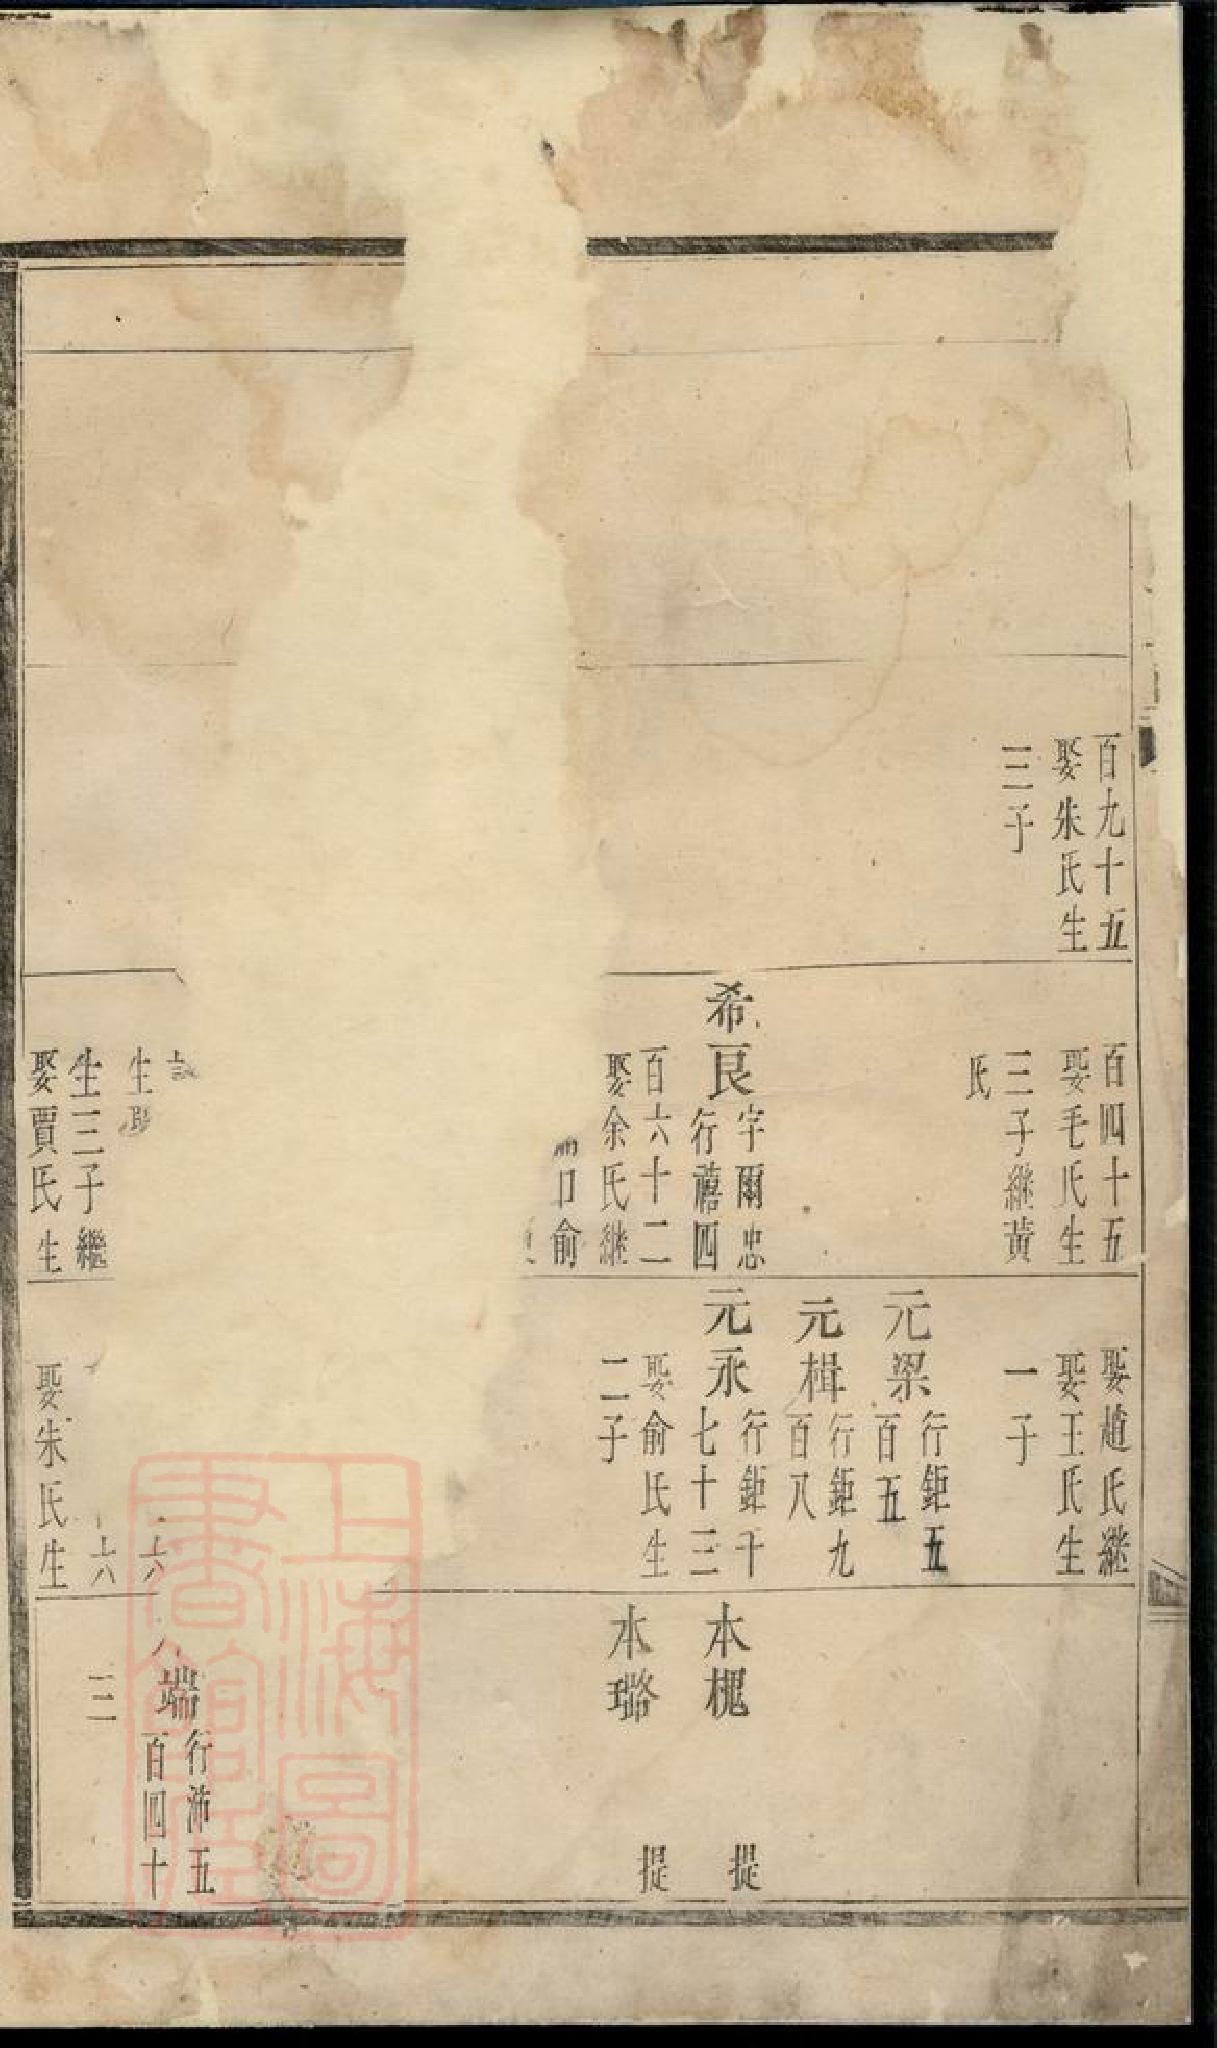 百九十五
娶朱氏生
三子
百四十五
娶毛氏生
三子繼黃
氏
希良
字爾忠
行禧四
百六十二
娶余氏継
俞
生
生三子繼
娶賈氏生
娶趙氏継
娶王氏生
一子
元梁
行鉅五
百五
元楫
行鉅九
百八
元永
行鉅千
七十三
娶俞氏生
二子
六
六
娶朱氏生
本槐
提
本璐
提
端
行沛五
百四十
三
上海圖書館藏